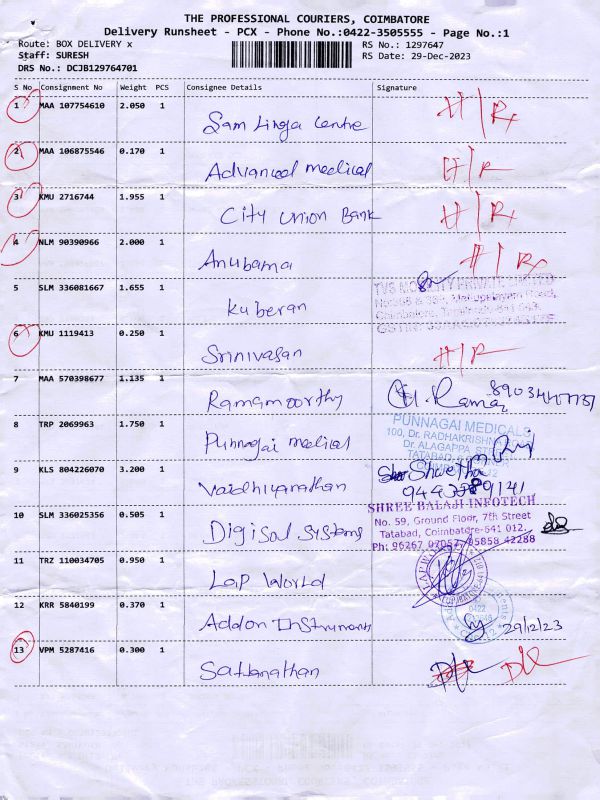 THE PROFESSIONAL COURIERS, COIMBATORE
Delivery Runsheet - PCX - Phone No.:0422-3505555 - Page No.:1
Route: BOX DELIVERY x
RS No.: 1297647
Staff: SURESH
RS Date: 29-Dec-2023
DRS No.: DCJB129764701
S No Consignment No Weight PCS Consignee Details Signature
1 MAA 107754610 2.050 1
Sam Linga Centre
2 MAA 106875546 0.170 1
Advanced medical
3 KMU 2716744 1.955 1
City Union Bank
4 NLM 90390966 2.000 1
Anubama
5 SLM 336081667 1.655 1
Kuberan
6 KMU 1119413 0.250 1
Srinivasan
7 MAA 570398677 1.135 1
Ramamoorthy
8 TRP 2069963 1.750 1
Punnagai medical
PUNNAGAI MEDICALS
100, Dr. RADHAKRISHN
Dr. ALAGAPPA
TATABAD
9 KLS 804226070 3.200 1
Vaidhiyanathan
Shwetha
10 SLM 336025356 0.505 1
Digisol Systems
SHREE BALAJI INFOTECH
No. 59, Ground Floor, 7th Street
Tatabad, Coimbatore-641 012.
Ph: 96267 07057 42288
11 TRZ 110034705 0.950 1
Lap World
12 KRR 5840199 0.370 1
Addon Instruments
29/12/23
13 VPM 5287416 0.300 1